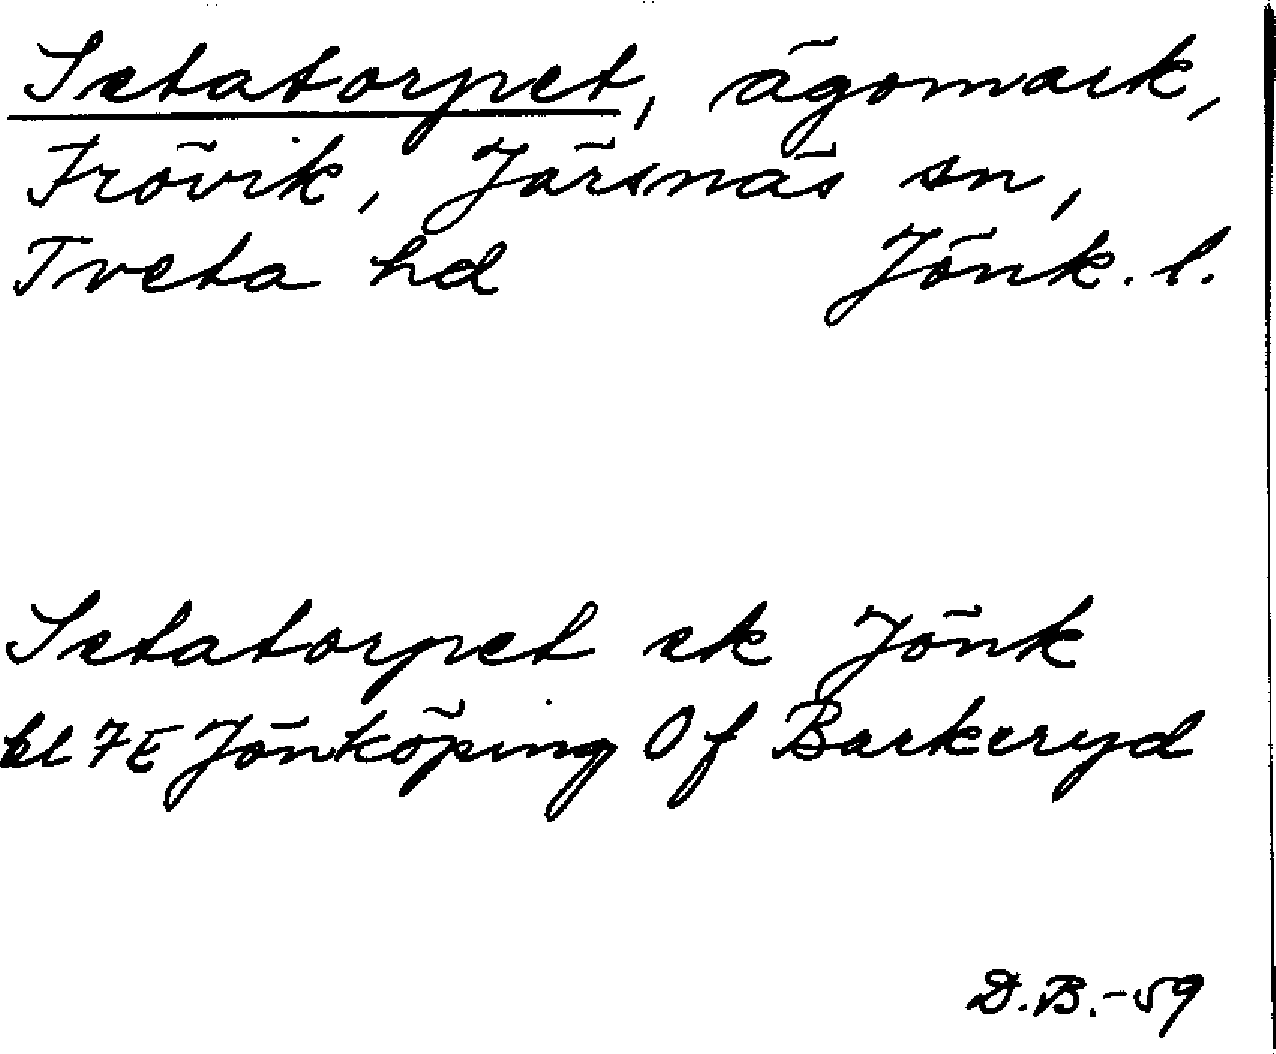 Setatorpet, ägomark,
Frövik, Järsnäs sn,
Tveta hd Jönk. l.
Setatorpet ek Jönk
bl 7E Jönköping Of Barkeryd
D.B.-59